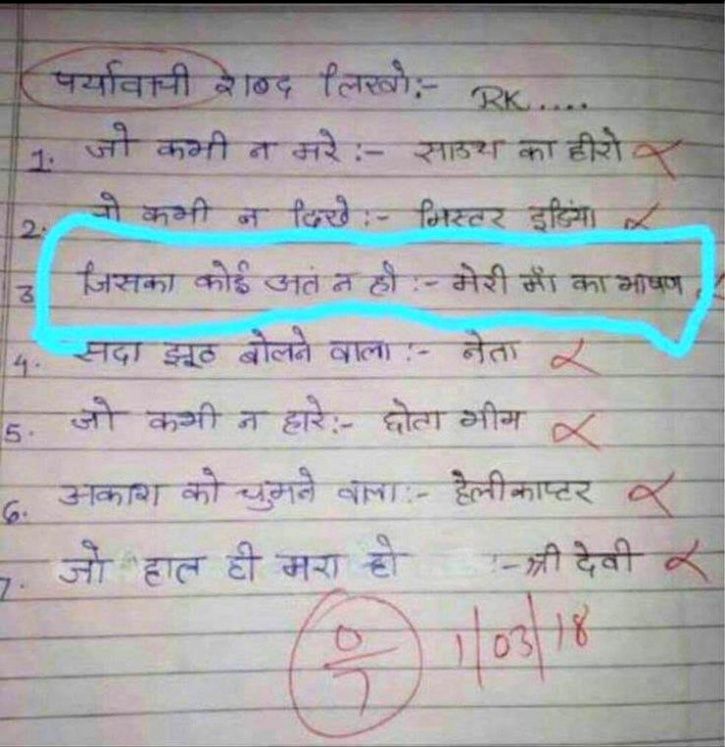 पर्यावाची शब्द लिखो:-
RK....
1. जो कभी न मरे :- साउथ का हीरो
2. जो कभी न दिखे :- मिस्टर इंडिया
3 जिसका कोई अतं न हो :- मेरी माँ का भाषण
4. सदा झूठ बोलने वाला :- नेता
5. जो कभी न हारे:- छोटा भीम
6. आकाश को चुमने वाला:- हेलीकाप्टर
7. जो हाल ही मरा हो :- श्री देवी
0/7 1/03/18